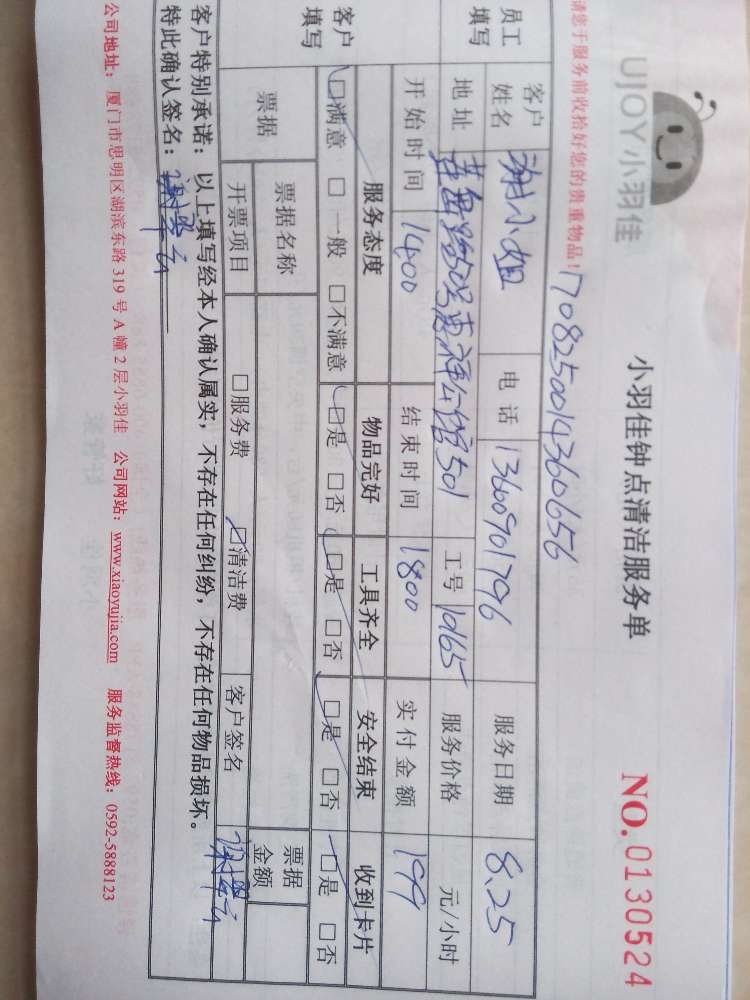 UJOY小羽佳
小羽佳钟点清洁服务单
NO.0130524
请您于服务前收拾好您的贵重物品!
1708250014360656
员工填写
客户姓名 谢小姐 电话 13600901796 服务日期 8.25
地址 501 工号 10165 服务价格 元/小时
开始时间 1400 结束时间 1800 实付金额 199
客户填写
服务态度 物品完好 工具齐全 安全结束 收到卡片
☑满意 □一般 □不满意 ☑是 □否 ☑是 □否 ☑是 □否 ☑是 □否
票据
票据名称 票据金额
开票项目 □服务费 ☑清洁费 客户签名
客户特别承诺：以上填写经本人确认属实，不存在任何纠纷，不存在任何物品损坏。
特此确认签名：
公司地址：厦门市思明区湖滨东路 319 号 A 幢 2 层小羽佳 公司网站：www.xiaoyujia.com 服务监督热线：0592-5888123